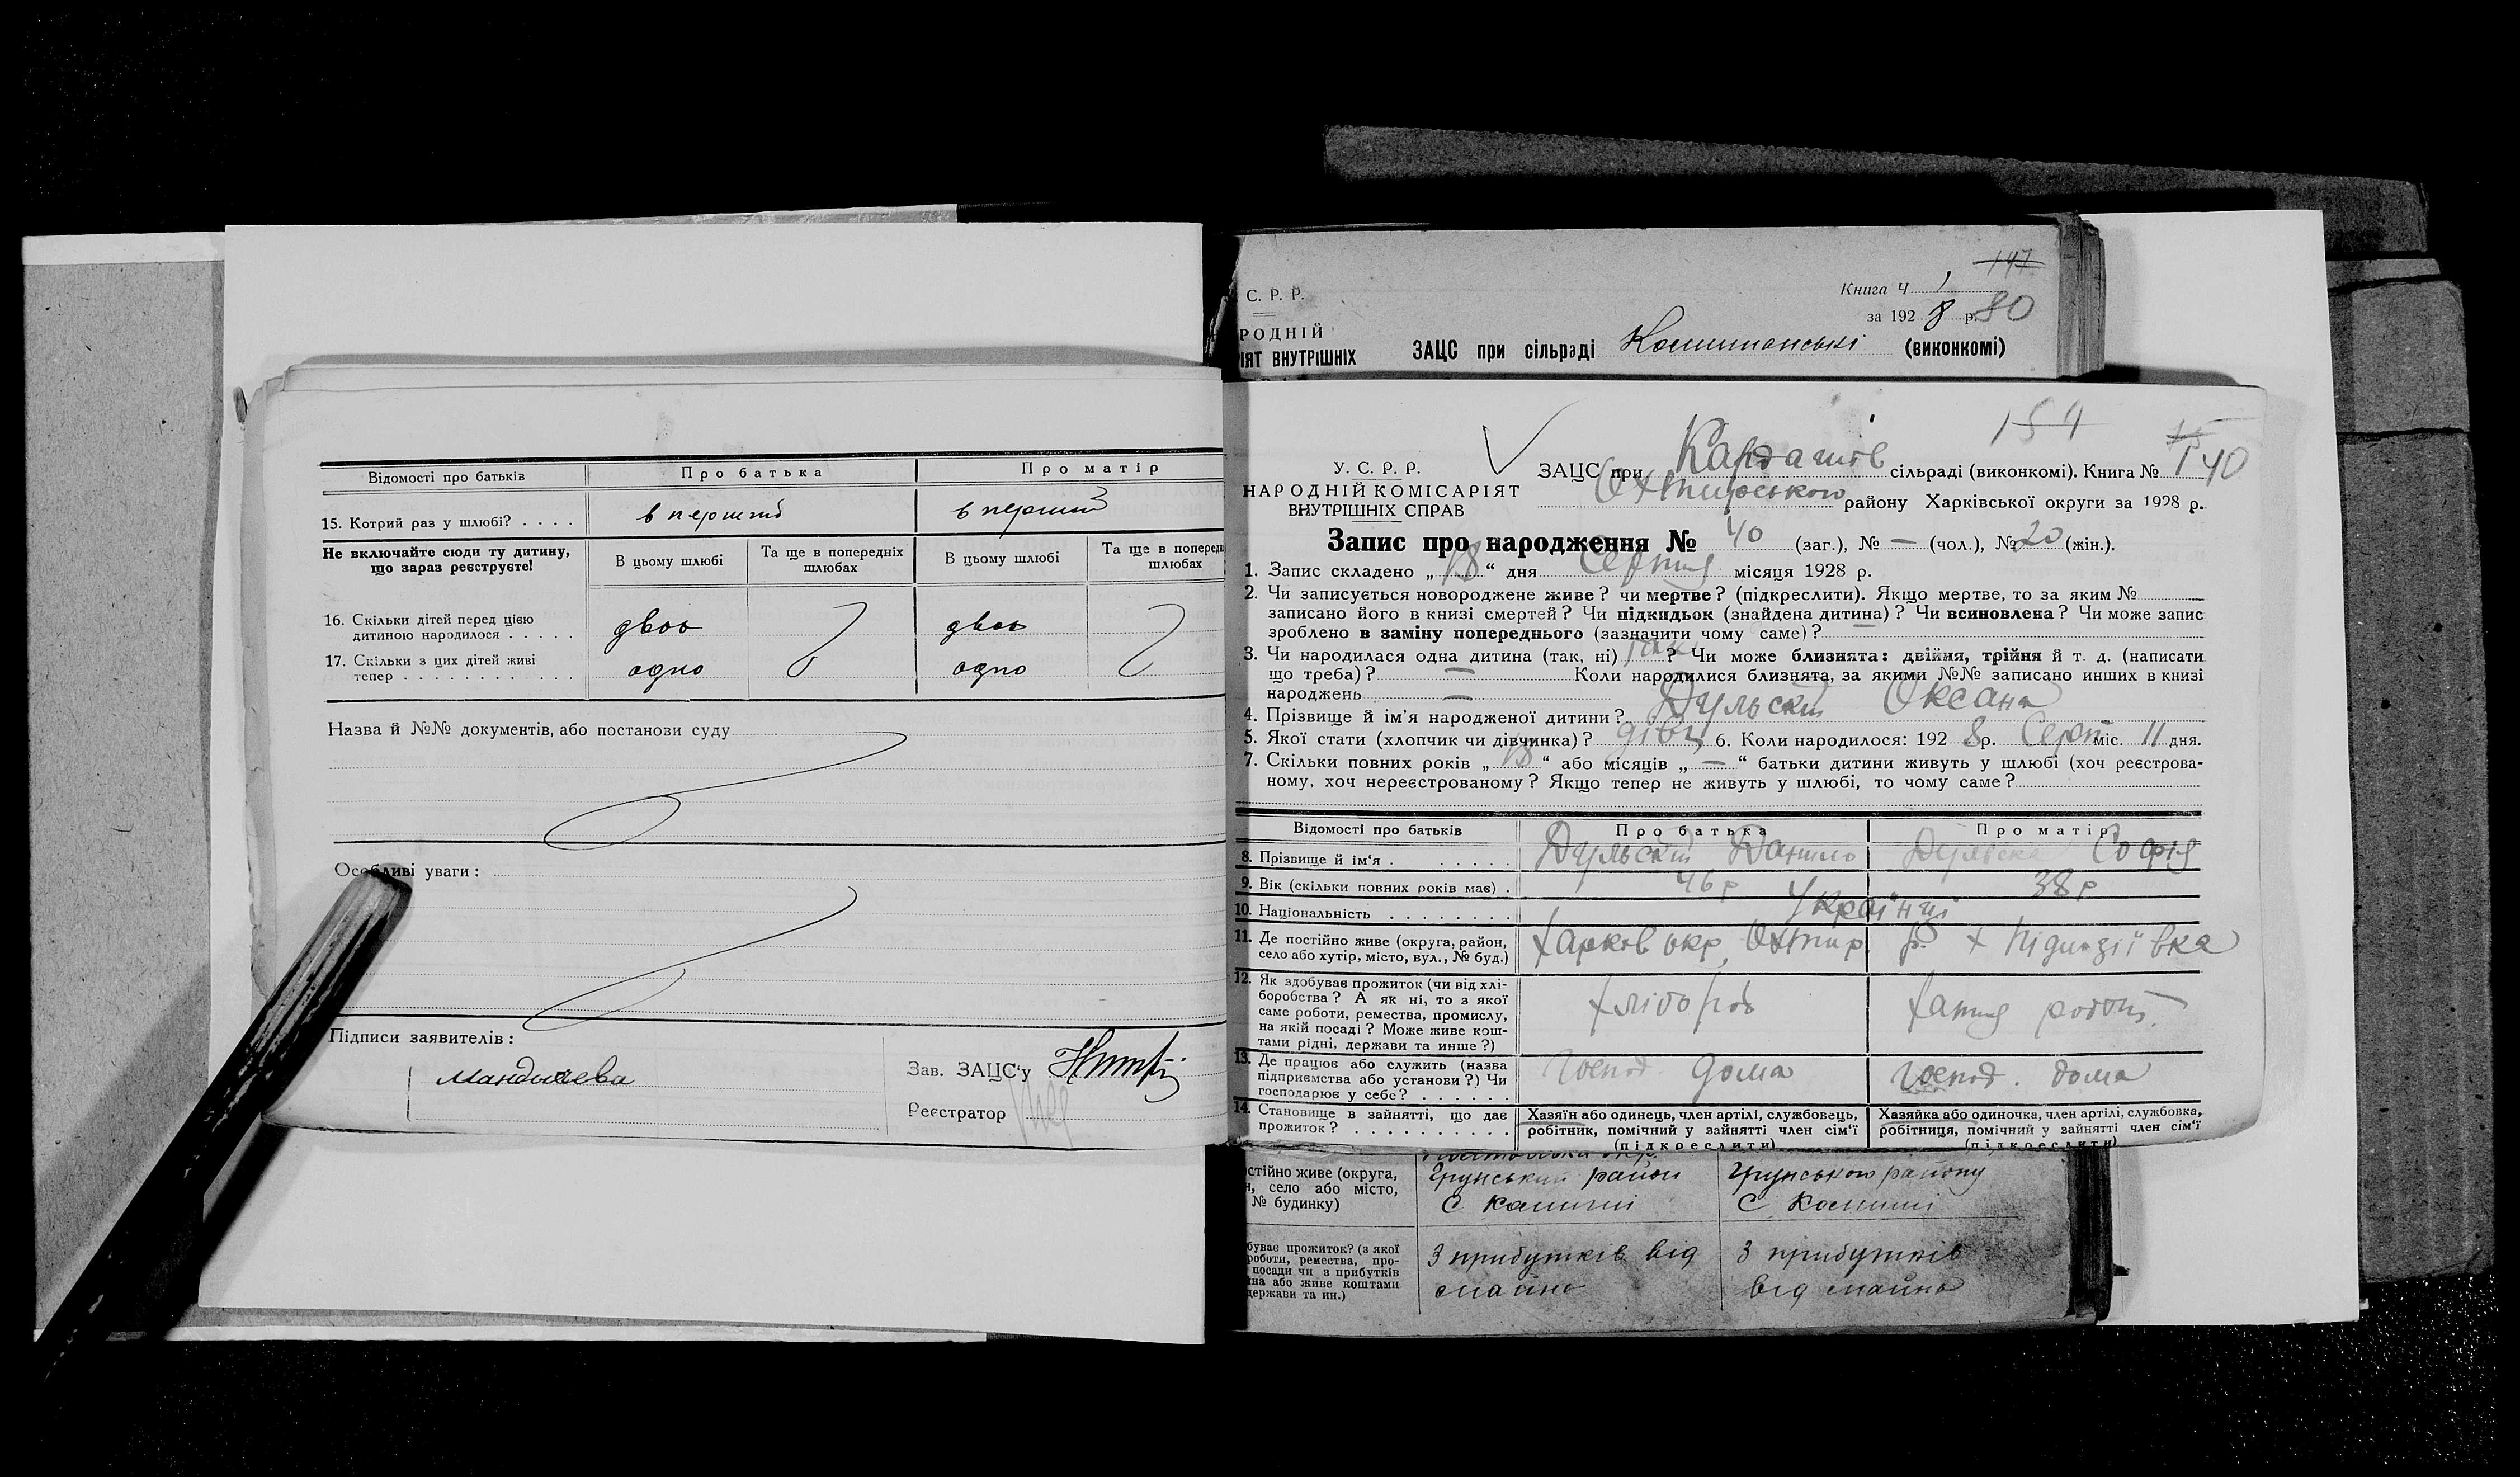 Відомості про батьків Про батька Про матір
15. Котрий раз у шлюбі? . . . . в перший в перший
Не включайте сюди ту дитину, що зараз реєструєте!
В цьому шлюбі Та ще в попередніх шлюбах В цьому шлюбі Та ще в поперед шлюбах
16. Скільки дітей перед цією
дитиною народилося . . . . . двоє двоє
17. Скільки з цих дітей живі
тепер . . . . . . . . . . . . одно одно
Назва й №№ документів, або постанови суду
Особливі уваги:
Підписи заявителів:
Зав. ЗАЦС'у
Реєстратор
147
С. Р. Р.
Книга Ч 1
за 1928 р. 80
РОДНІЙ
ІЯТ ВНУТРІШНІХ ЗАЦС при сільраді (виконкомі)
154
У. С. Р. Р.
НАРОДНІЙ КОМІСАРІЯТ
ВНУТРІШНІХ СПРАВ
ЗАЦС при Кардашів сільраді (виконкомі). Книга № 1 40
Охтирського району Харківської округи за 1928 р.
Запис про народження № 40 (заг.), № — (чол.), № 20 (жін.).
1. Запис складено „18“ дня Серпня місяця 1928 р.
2. Чи записується новороджене живе? чи мертве? (підкреслити). Якщо мертве, то за яким №
записано його в книзі смертей? Чи підкидьок (знайдена дитина)? Чи всиновлена? Чи може запис
зроблено в заміну попереднього (зазначити чому саме)? —
3. Чи народилася одна дитина (так, ні) так? Чи може близнята: двійня, трійня й т. д. (написати
що треба)? — Коли народилися близнята, за якими №№ записано инших в книзі
народжень —
4. Прізвище й ім'я народженої дитини? Дульский Оксана
5. Якої стати (хлопчик чи дівчинка)? дівч 6. Коли народилося: 1928 р. Серп міс. 11 дня.
7. Скільки повних років „18“ або місяців „—“ батьки дитини живуть у шлюбі (хоч реєстрова-
ному, хоч нереєстрованому? Якщо тепер не живуть у шлюбі, то чому саме?
Відомості про батьків Про батька Про матір
8. Прізвище й ім'я . . . . . . Дульский Данило Дульска Софія
9. Вік (скільки повних років має) . 46 р 38 р
10. Національність . . . . . . . . Українці
11. Де постійно живе (округа, район,
село або хутір, місто, вул., № буд.) Харков окр, Охтир. р. х
12. Як здобуває прожиток (чи від хлі-
боробства? А як ні, то з якої
саме роботи, ремества, промислу,
на якій посаді? Може живе кош-
тами рідні, держави та инше?)
хлібороб хатня робот.
13. Де працює або служить (назва
підприємства або установи?) Чи
господарює у себе? . . . . . .
господ. дома господ. дома
14. Становище в зайнятті, що дає
прожиток? . . . . . . . . . .
Хазяїн або одинець, член артілі, службовець,
робітник, помічний у зайнятті член сім'ї
(підкреслити)
Хазяйка або одиночка, член артілі, службовка,
робітниця, помічний у зайнятті член сім'ї
(підкреслити)
стійно живе (округа,
н, село або місто,
№ будинку)
Грунський район Грунського району
С С
буває прожиток? (з якої
роботи, ремества, про-
посади чи з прибутків
на або живе коштами
держави та ин.)
З прибутків від З прибутків
майна від майна